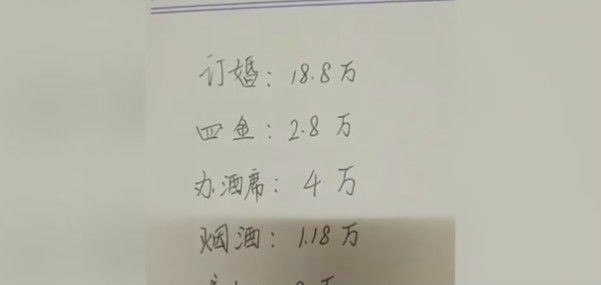 订婚：18.8万
四金：2.8万
办酒席：4万
烟酒：1.18万